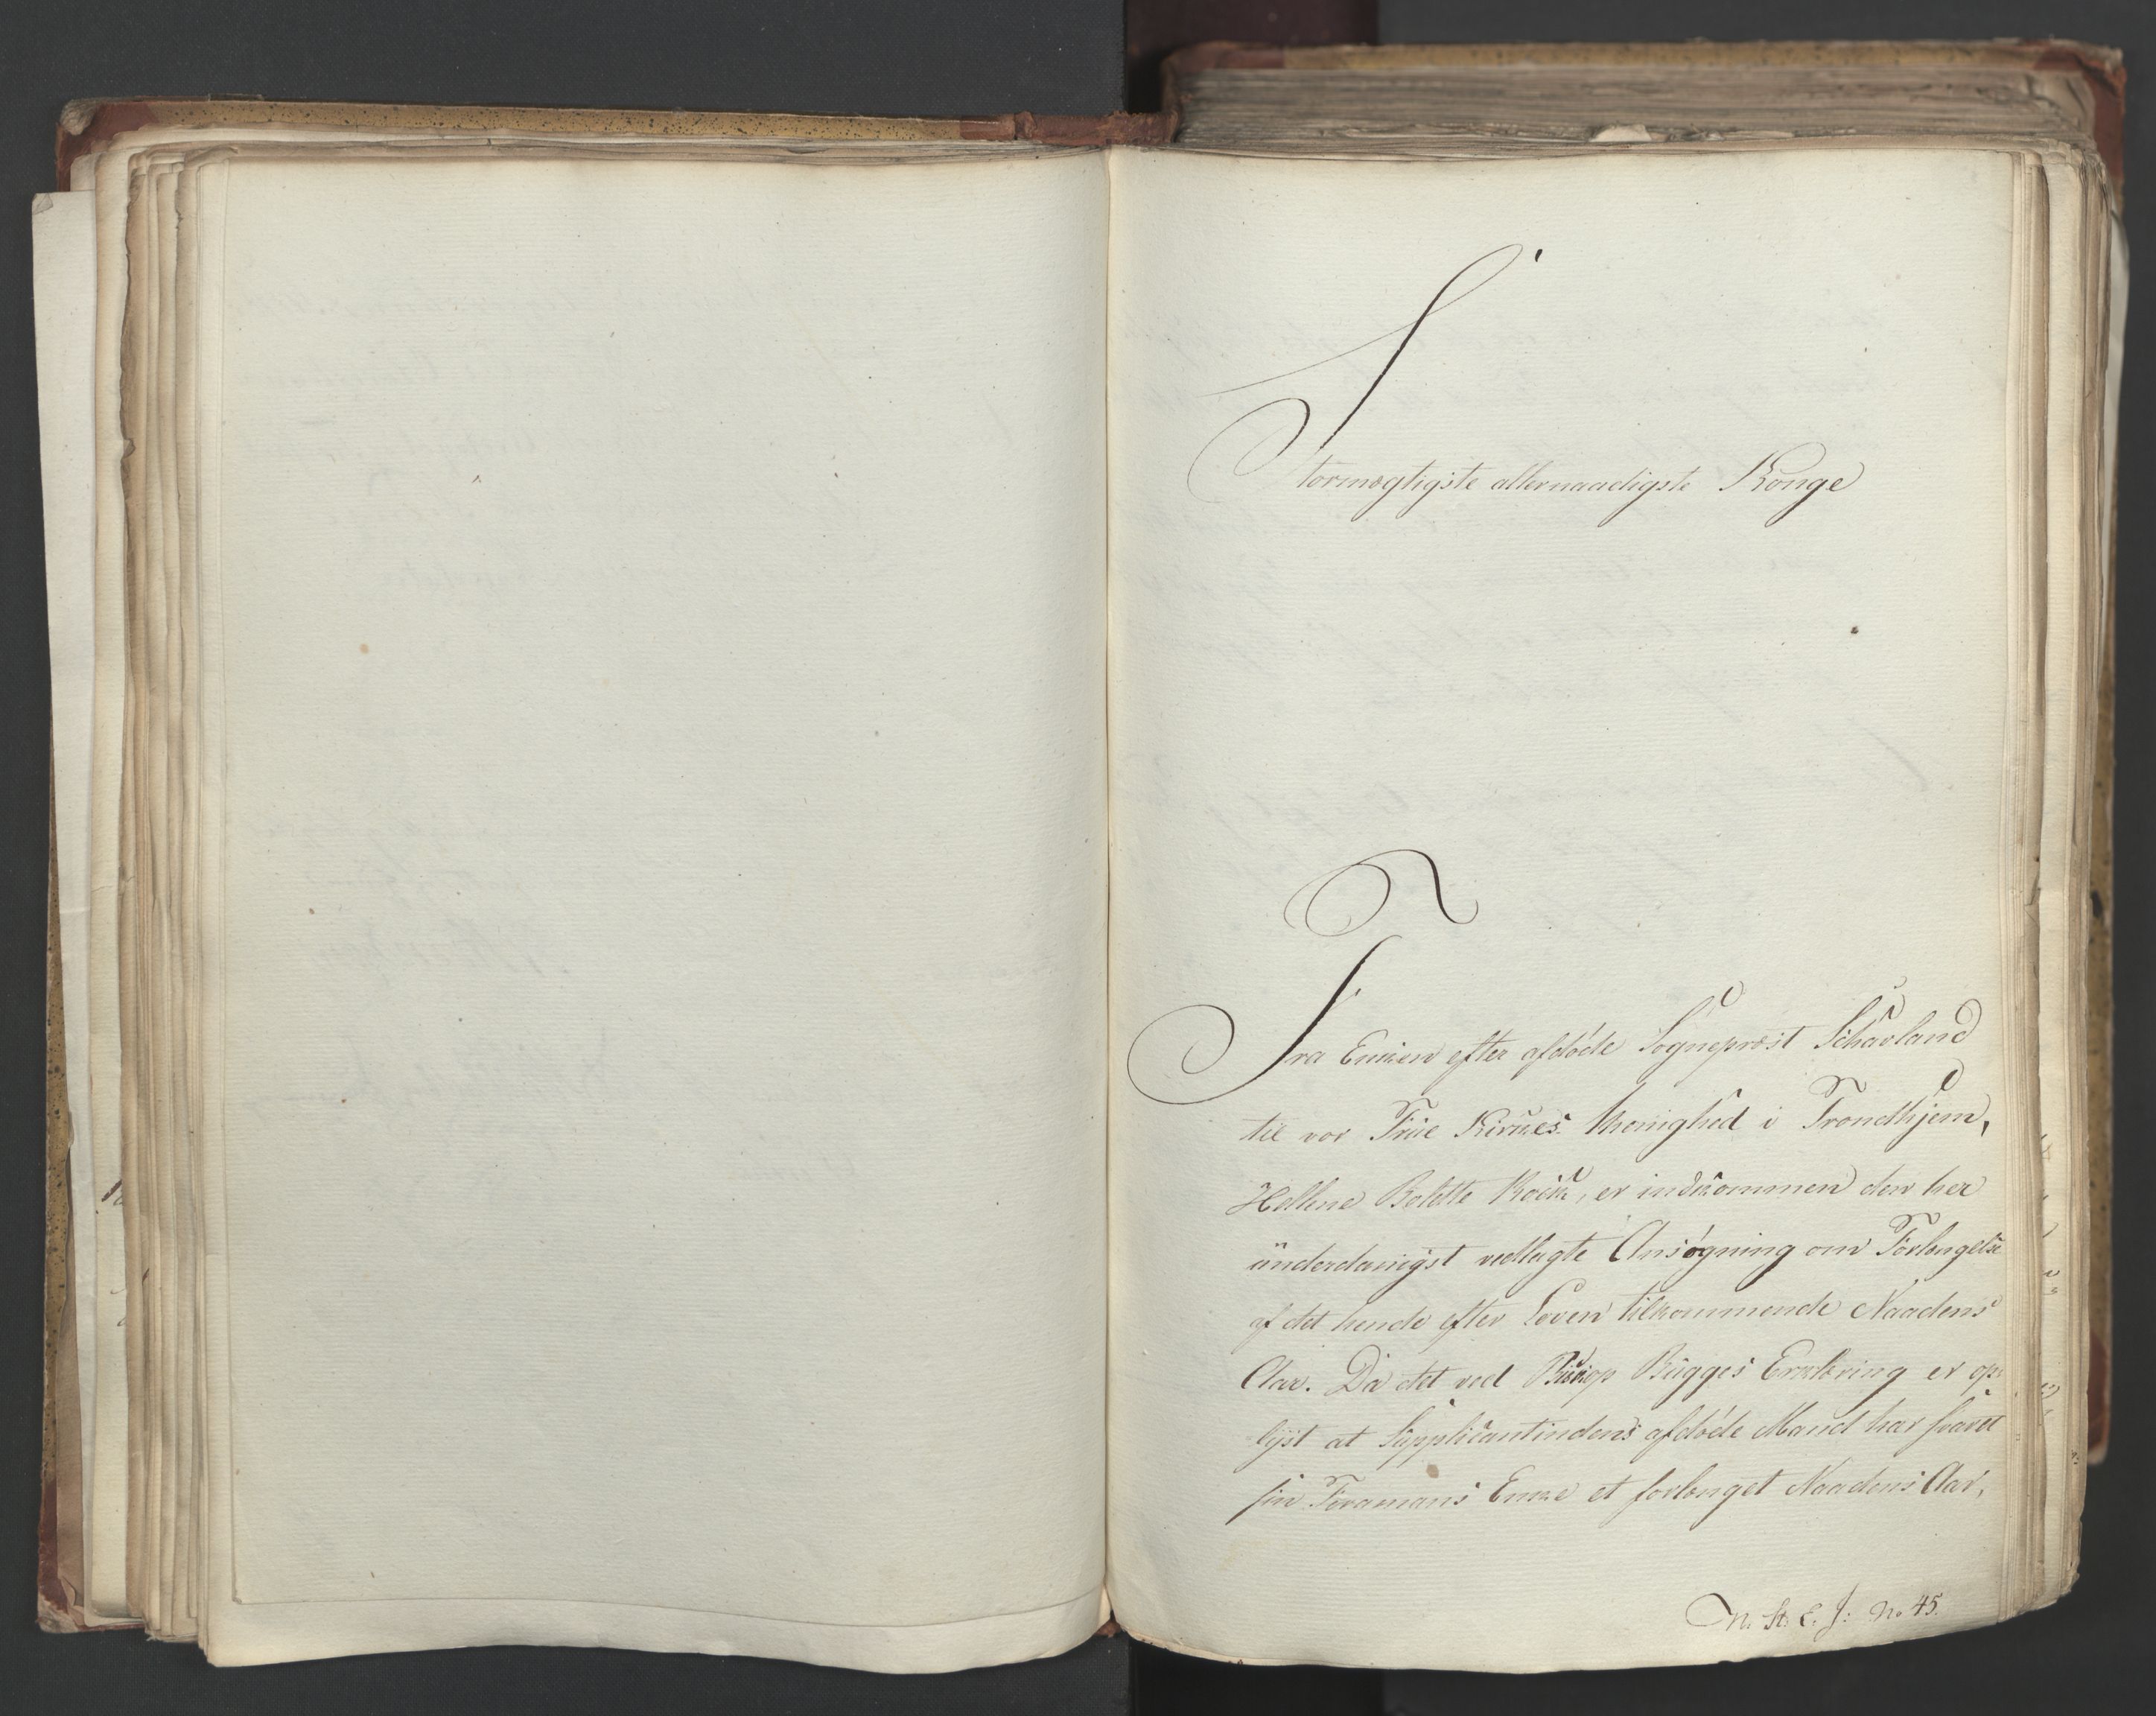 Stormægtigste allernaadigste Konge
Fra Enken efter afdöde Sognepræst Schavland
til vor Frue Kirkes Menighed i Trondhjem,
Hellene Bolette Kock, er indkommen den her
ünderdanigst vedlagte Ansøgning om Forlængelse
af det hende efter Loven tilkommende Naadens
Aar. Da det ved Biskop Bugges Erklæring er op¬
lyst at Supplicantindens afdöde Mand har svaret
sin Formans Enke et forlænget Naadens Aar,
N. St. E. J: No 45.